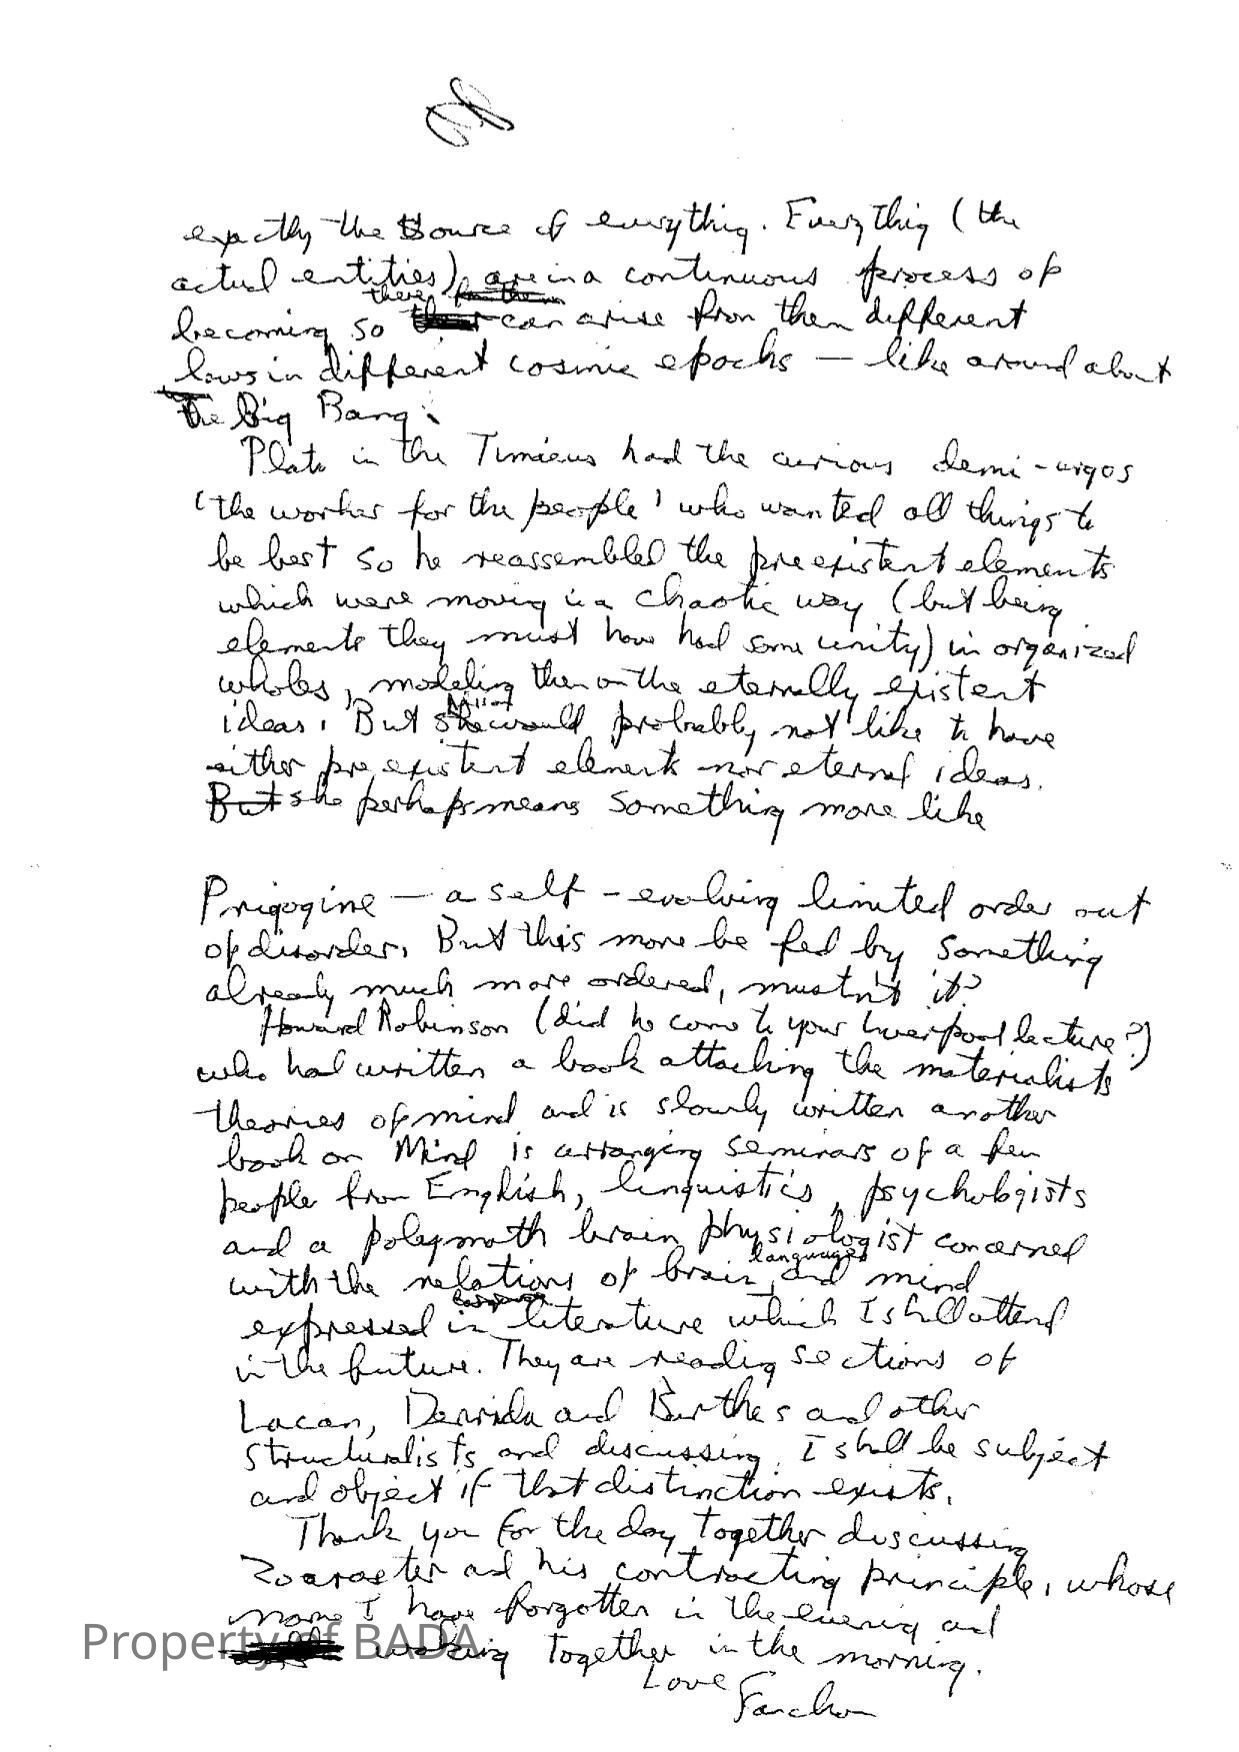 exactly the source of everything. Everything (the
actual entities) are in a continuous process of
there
becoming so can arise from them different
laws in different cosmic epochs — like around about
the Big Bang.
Plato in the Timieus had the curious demi-urgos
'the worker for the people' who wanted all things to
be best so he reassembled the preexistent elements
which were moving in a chaotic way (but being
elements they must have had some unity) in organized
wholes, modeling them on the eternally existent
ideas. But she would probably not like to have
either pre existent elements nor eternal ideas.
But she perhaps means something more like
Prigogine — a self-evolving limited order out
of disorder. But this more be fed by something
already much more ordered, mustn't it?
Howard Robinson (did he come to your Liverpool lecture?)
who had written a book attacking the materialists
theories of mind and is slowly written another
book on Mind is arranging seminars of a few
people from English, linguistics, psychologists
and a polymath brain physiologist concerned
languages
with the relations of brain, and mind
expressed in literature which I shall attend
in the future. They are reading sections of
Lacan, Derrida and Barthes and other
structuralists and discussing. I shall be subject
and object if that distinction exists.
Thank you for the day together discussing
Zoaraster and his contracting principle, whose
name I have forgotten in the evening and
walking together in the morning.
Love
Property of BADA